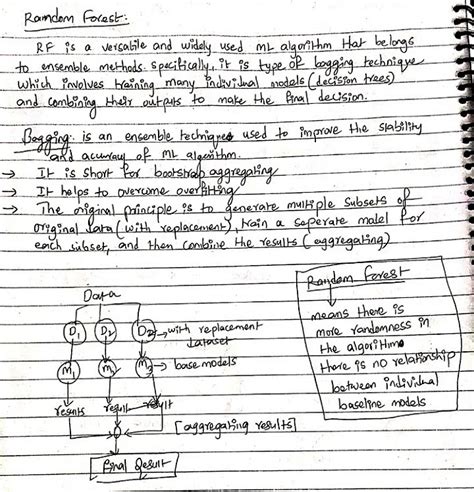 Random Forest:
RF is a versatile and widely used ML algorithm that belongs
to ensemble methods. specifically, it is type of bagging technique
which involves training many individual models (decision trees)
and combining their outputs to make the final decision.
Bagging: is an ensemble technique used to improve the stability
and accuracy of ML algorithm.
→ It is short for bootstrap aggregating
→ It helps to overcome overfitting
→ The original principle is to generate multiple subsets of
original data (with replacement), train a seperate model for
each subset, and then combine the results (aggregating)
Data
D1 D2 D2 → with replacement
dataset
M1 M2 M3 → base models
results result result
[aggregating results]
Final Result
Random Forest
means there is
more randomness in
the algorithm
there is no relationship
between individual
baseline models